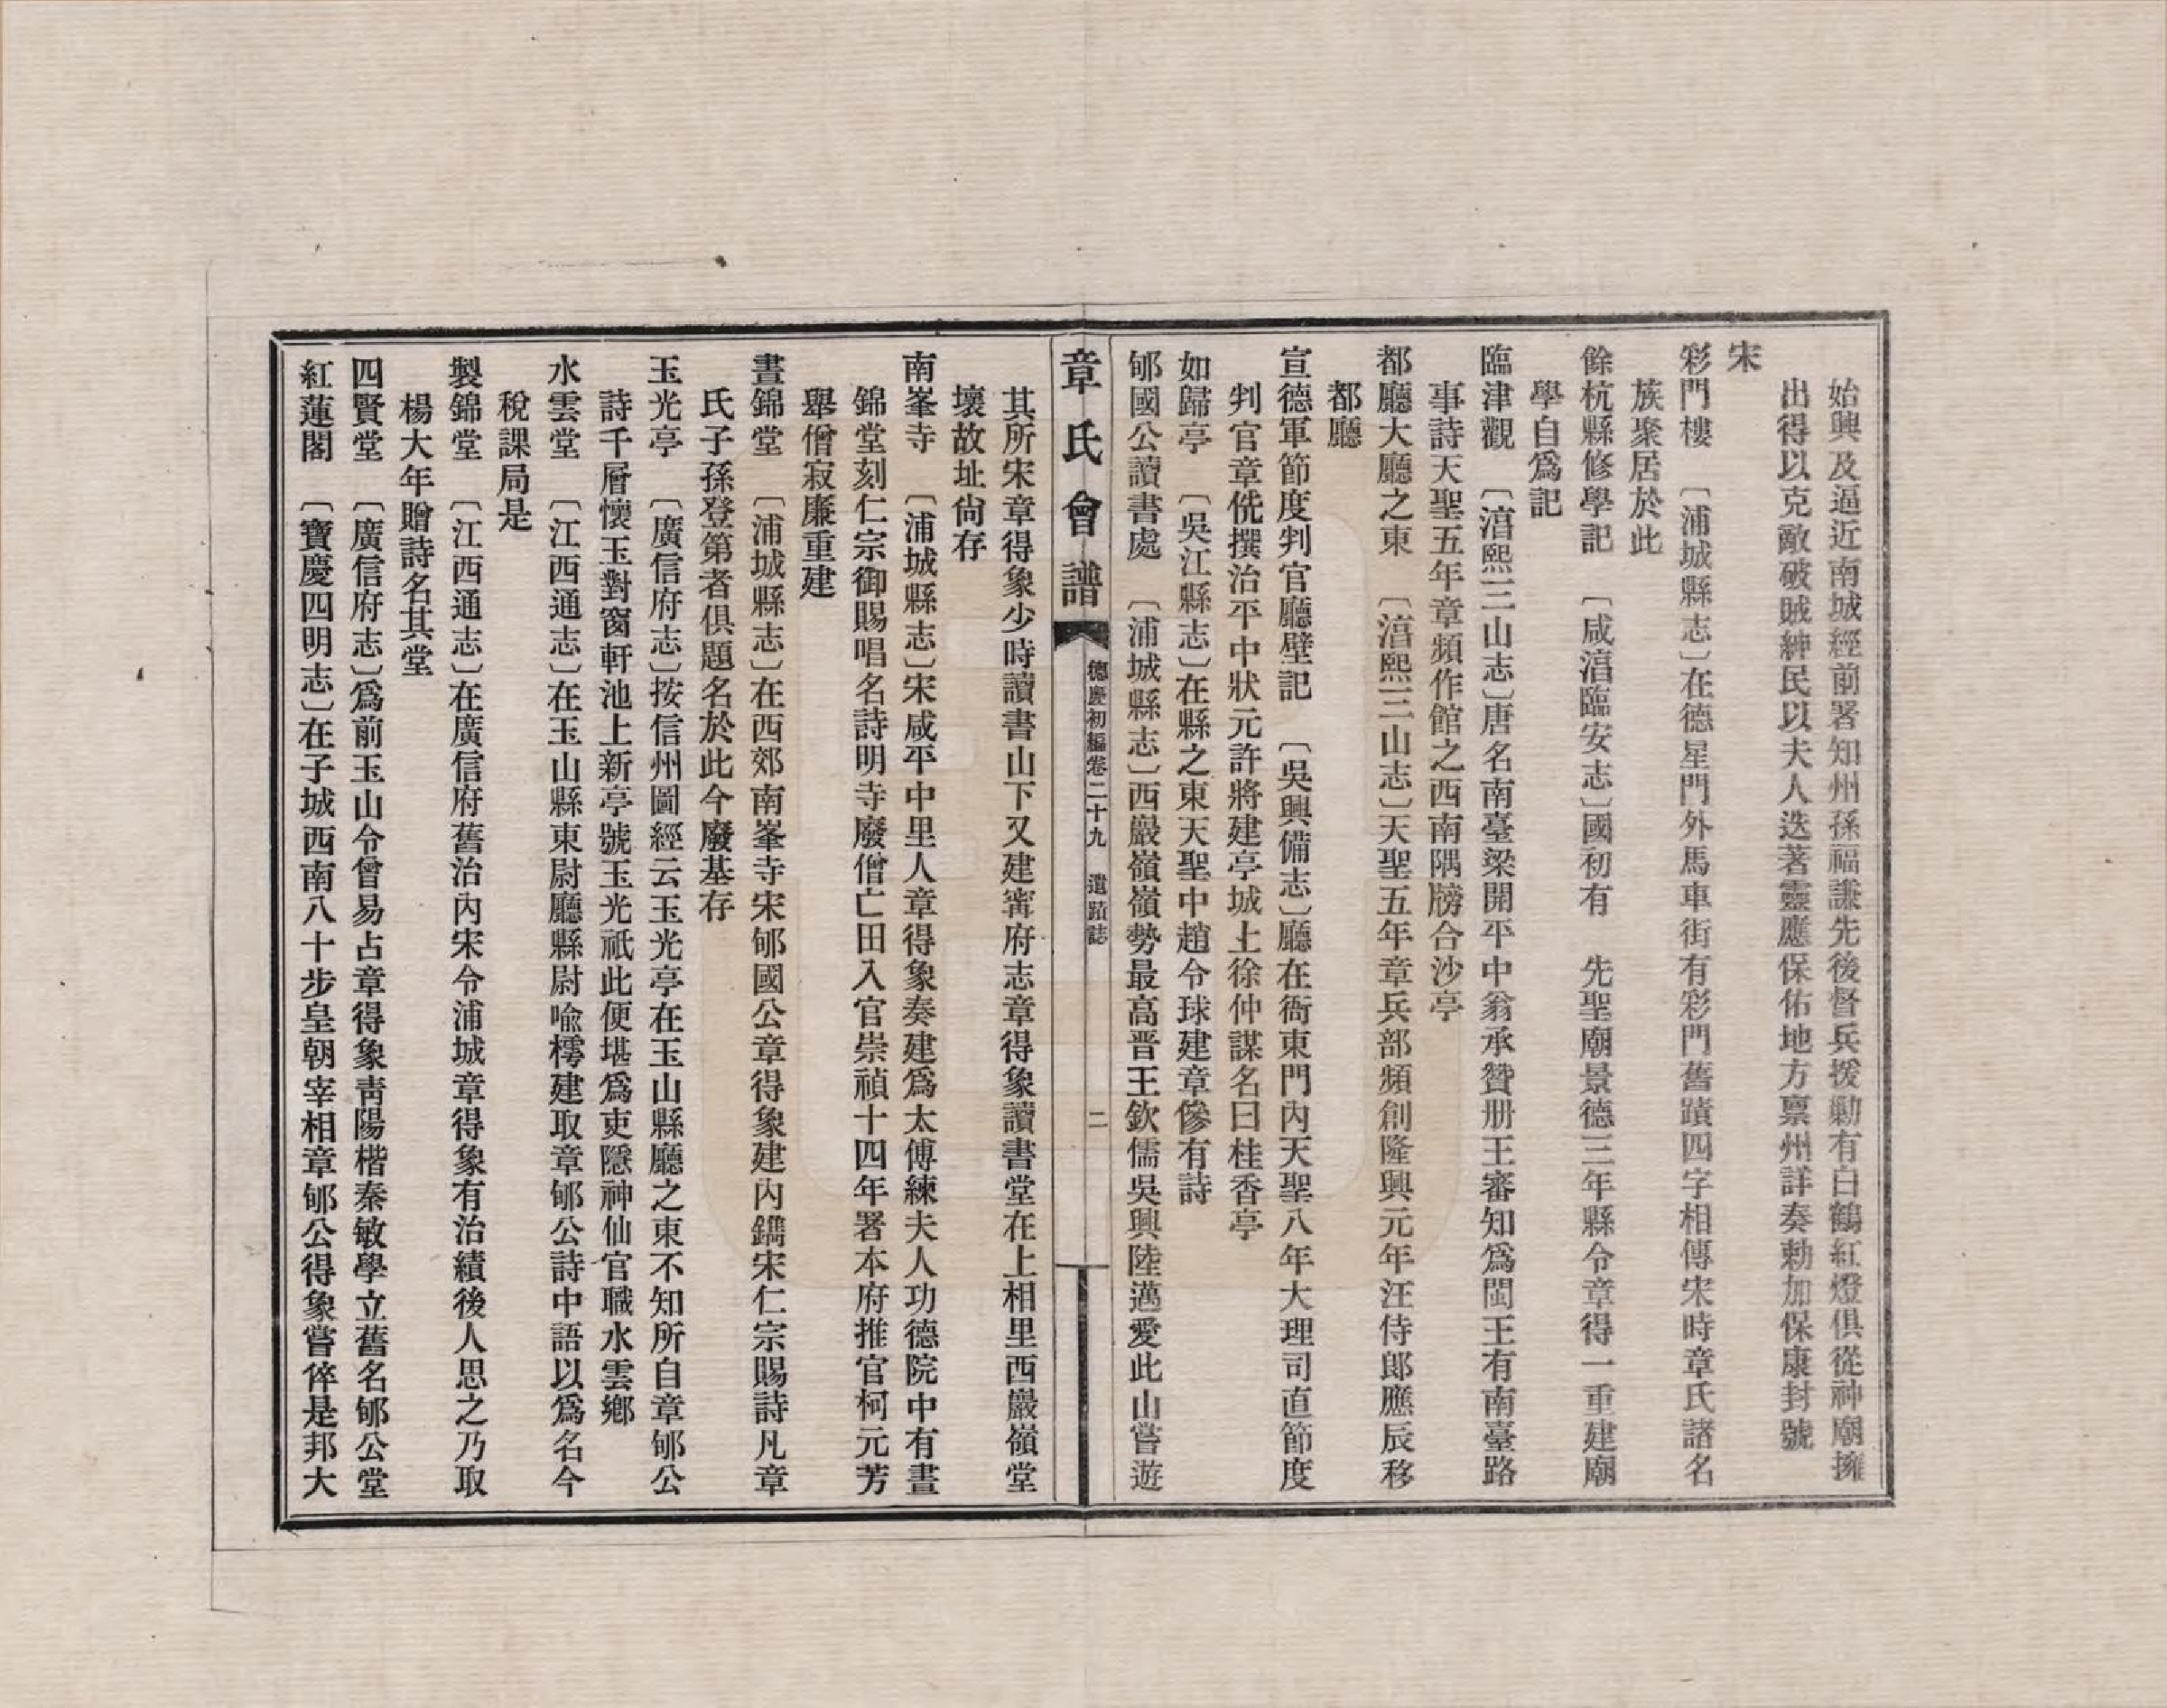 始興及逼近南城經前署知州孫福謙先後督兵援勦有白鶴紅燈俱從神廟擁
出得以克敵破賊紳民以夫人迭著靈應保佑地方禀州詳奏勅加保康封號
宋
彩門樓　〔浦城縣志〕在德星門外馬車街有彩門舊蹟四字相傳宋時章氏諸名
族聚居於此
餘杭縣修學記　〔咸湻臨安志〕國初有　先聖廟景德三年縣令章得一重建廟
學自爲記
臨津觀　〔湻熙三山志〕唐名南臺梁開平中翁承贊册王審知爲閩王有南臺路
事詩天聖五年章頻作館之西南隅牓合沙亭
都廳大廳之東　〔湻熙三山志〕天聖五年章兵部頻創隆興元年汪侍郎應辰移
都廳
宣德軍節度判官廳壁記　〔吳興備志〕廳在衙東門內天聖八年大理司直節度
判官章侁撰治平中狀元許將建亭城上徐仲謀名曰桂香亭
如歸亭　〔吳江縣志〕在縣之東天聖中趙令球建章傪有詩
郇國公讀書處　〔浦城縣志〕西巖嶺嶺勢最高晋王欽儒吳興陸邁愛此山嘗遊
章氏會譜
德慶初編卷二十九　遺蹟誌
二
其所宋章得象少時讀書山下又建寗府志章得象讀書堂在上相里西巖嶺堂
壞故址尙存
南峯寺　〔浦城縣志〕宋咸平中里人章得象奏建爲太傅練夫人功德院中有晝
錦堂刻仁宗御賜唱名詩明寺廢僧亡田入官崇禎十四年署本府推官柯元芳
舉僧寂廉重建
晝錦堂　〔浦城縣志〕在西郊南峯寺宋郇國公章得象建內鐫宋仁宗賜詩凡章
氏子孫登第者俱題名於此今廢基存
玉光亭　〔廣信府志〕按信州圖經云玉光亭在玉山縣廳之東不知所自章郇公
詩千層懷玉對窗軒池上新亭號玉光祇此便堪爲吏隱神仙官職水雲鄉
水雲堂　〔江西通志〕在玉山縣東尉廳縣尉喩樗建取章郇公詩中語以爲名今
稅課局是
製錦堂　〔江西通志〕在廣信府舊治內宋令浦城章得象有治績後人思之乃取
楊大年贈詩名其堂
四賢堂　〔廣信府志〕爲前玉山令曾易占章得象靑陽楷秦敏學立舊名郇公堂
紅蓮閣　〔寶慶四明志〕在子城西南八十步皇朝宰相章郇公得象嘗倅是邦大